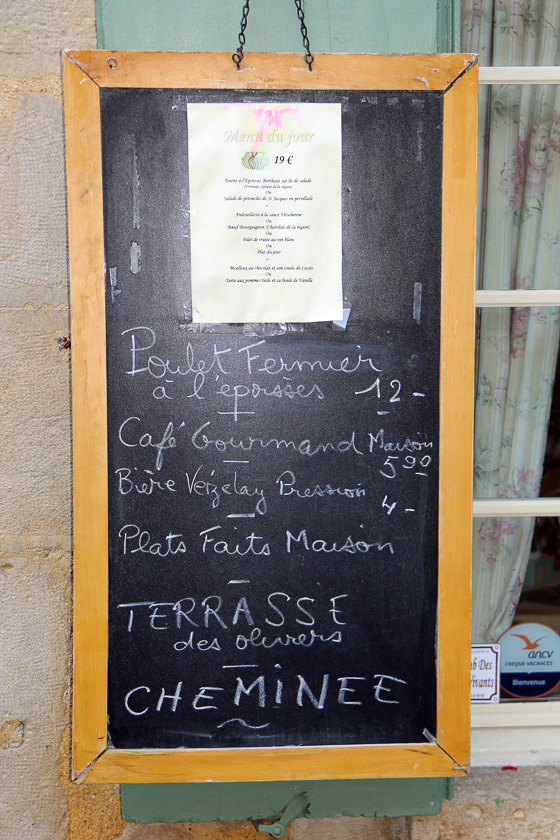 Menu du jour
19 €
Tourte à l'Epoisses Berthaut sur lit de salade
(Fromage typique de la région)
Ou
Salade de pétoncles de St Jacques en persillade
~
Andouillette à la sauce Vézelienne
Ou
Bœuf Bourguignon (Charolais de la région)
Ou
Filet de truite au vin blanc
Ou
Plat du jour
~
Moelleux au chocolat et son coulis de Cassis
Ou
Tarte aux pommes tiède et sa boule de Vanille
Poulet Fermier
à l'époisses 12 -
Café Gourmand Maison
5 90
Bière Vezelay Pression
4 -
Plats Faits Maison
TERRASSE
des oliviers
CHEMINEE
ancv
CHÈQUE-VACANCES
Bienvenue
b Des
Vivants